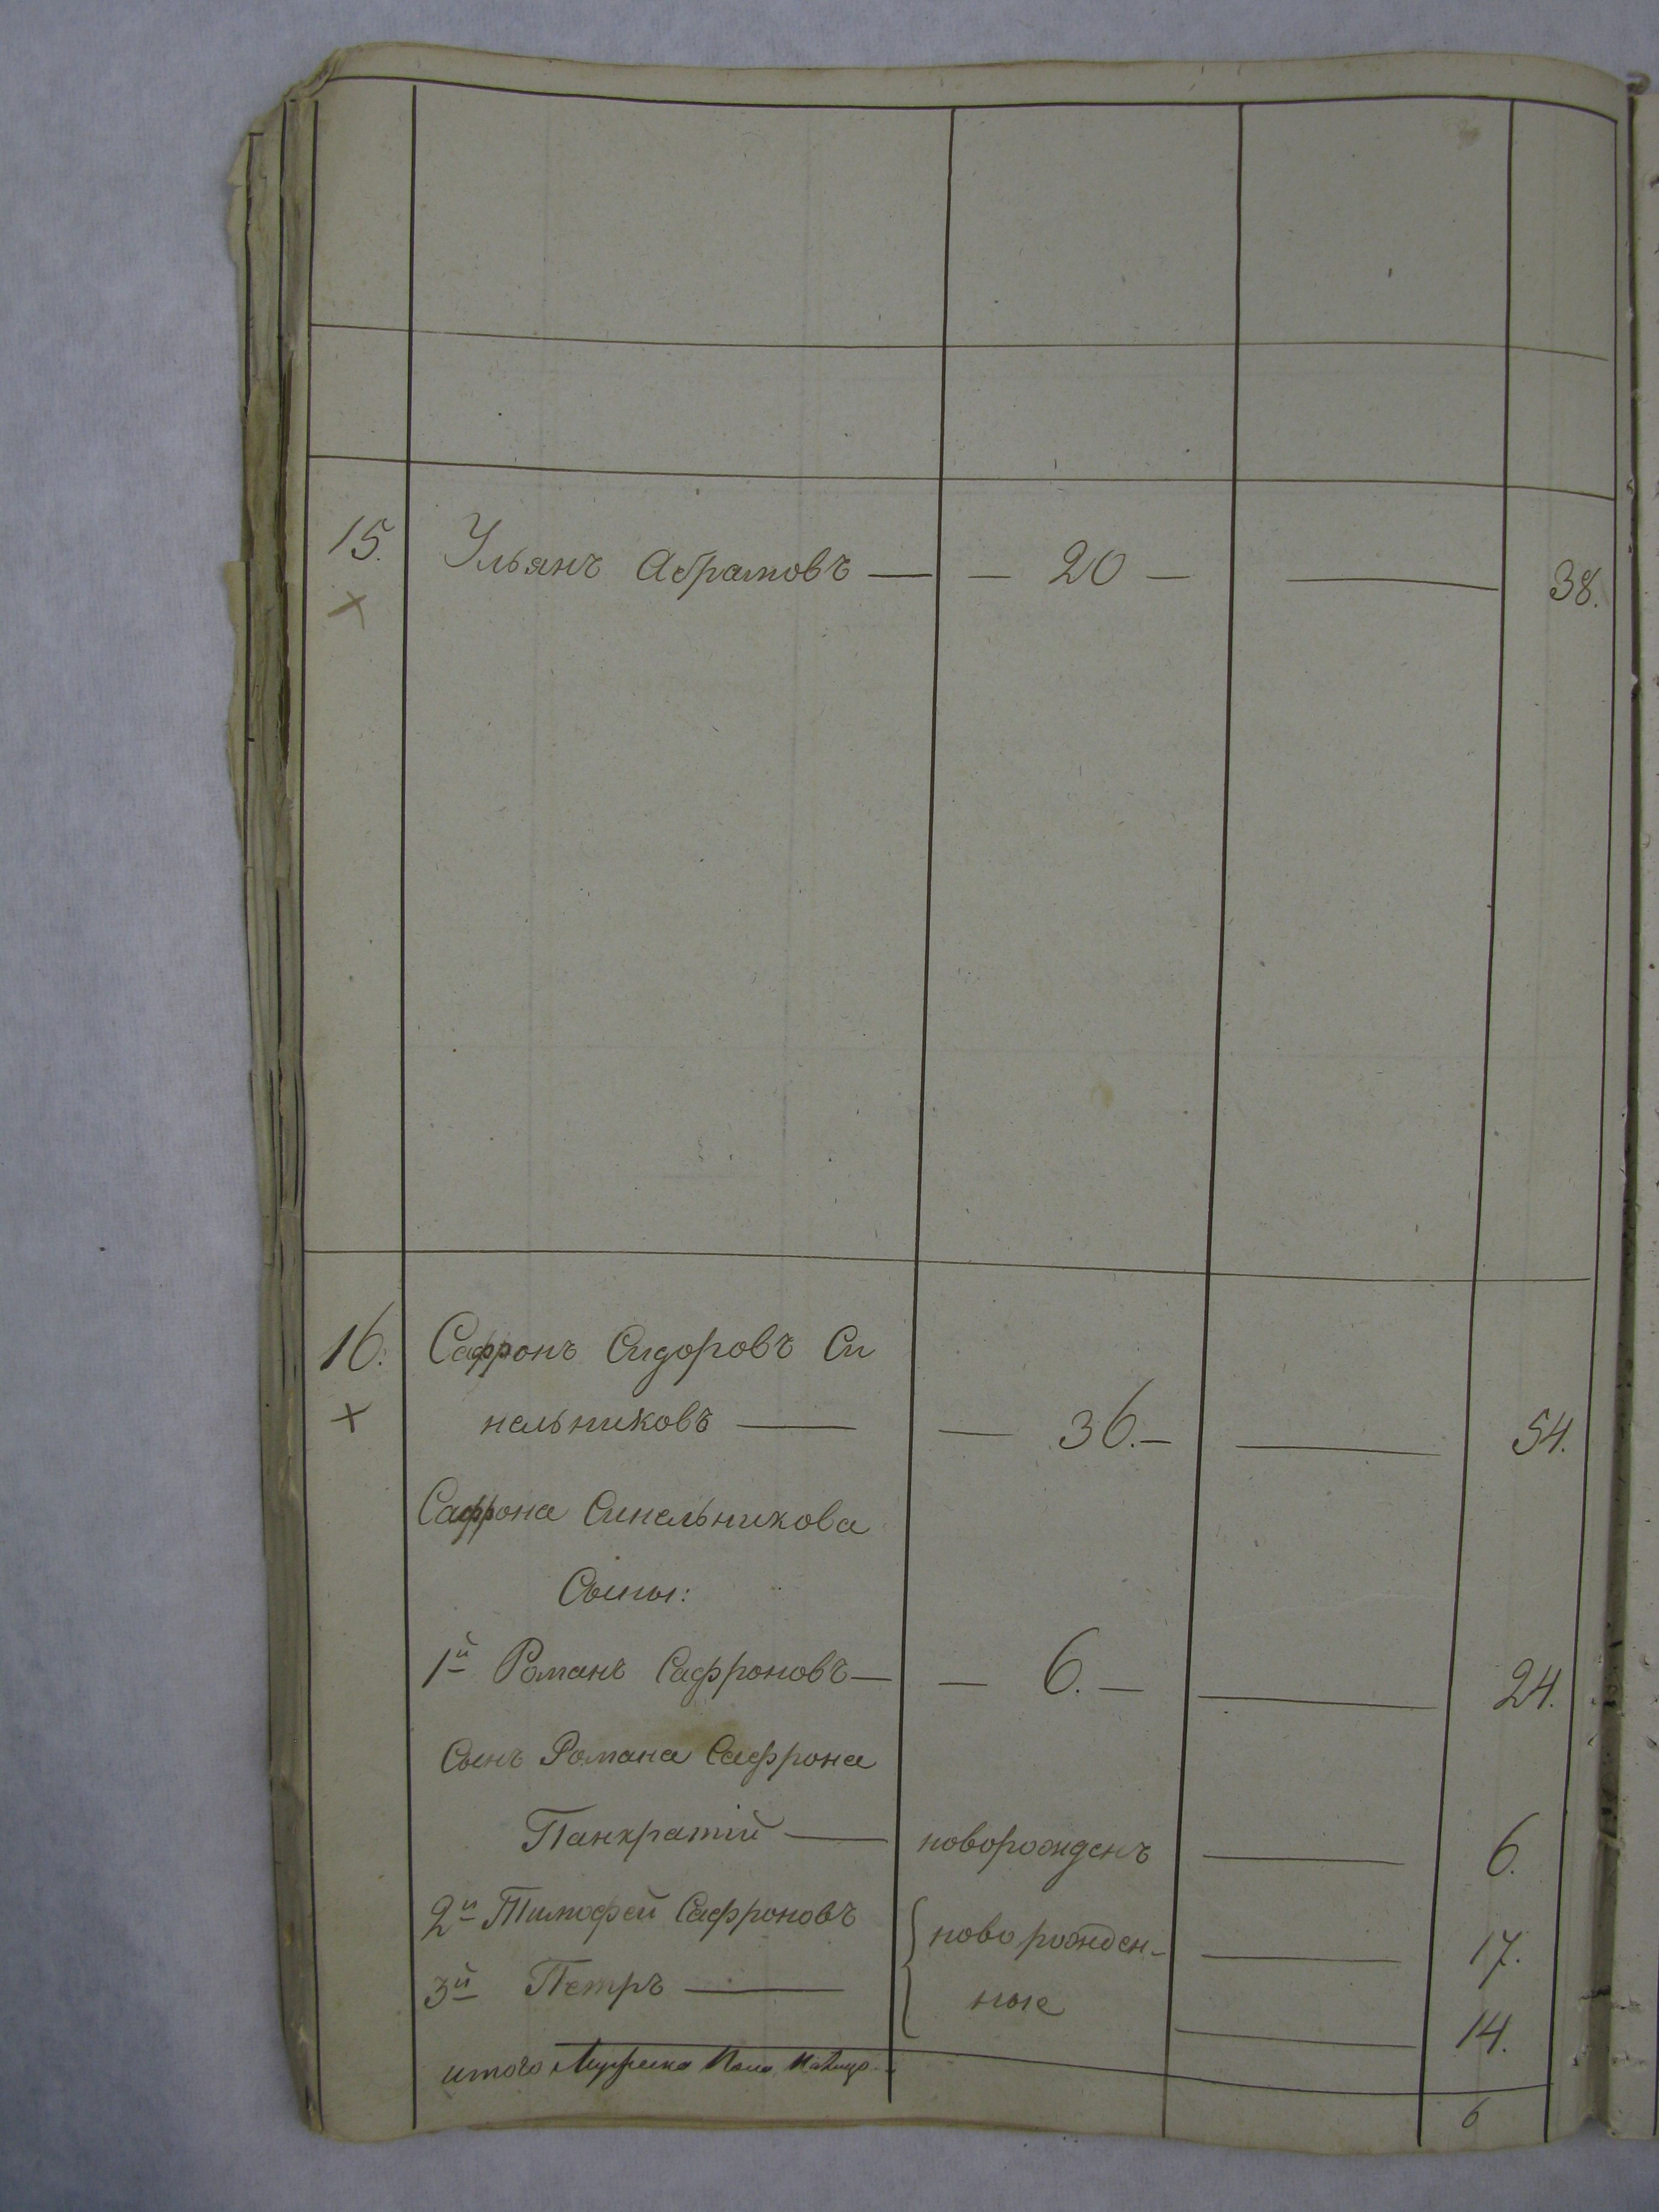 15. Ульянъ Абрамовъ — — 20 — — 38.
×
16. Сафронъ Сидоровъ Си
× нельниковъ — — 36. — — 54.
Сафрона Синельникова
Сыны:
1й Романъ Сафроновъ — — 6. — — 24.
Сынъ Романа Сафрона
Панкратій — новорожденъ — 6.
2й Тимофей Сафроновъ { новорожден- — 17.
3й Петръ — ные — 14.
итого Мужеска Пола 6